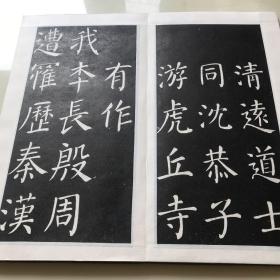 清遠道士
同沈恭子
游虎丘寺
有作
我本長殷周
遭罹歷秦漢